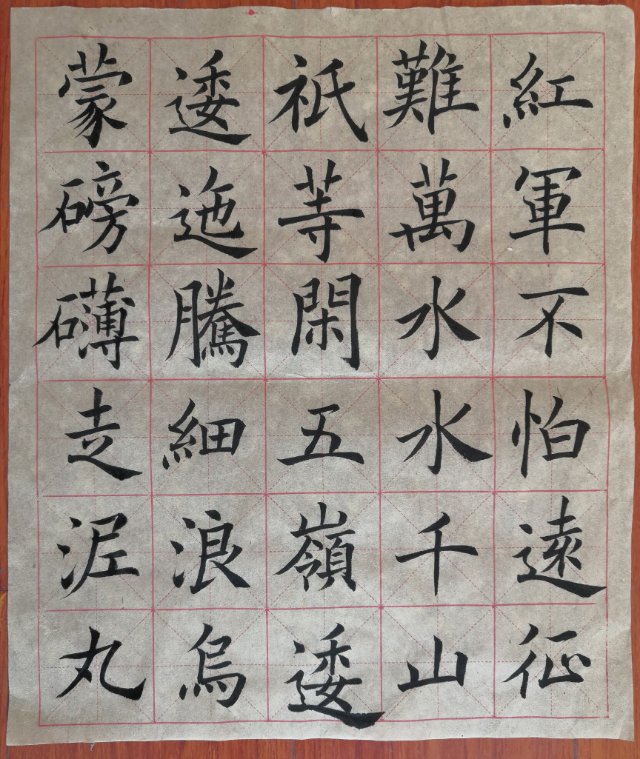 紅軍不怕遠征
難萬水水千山
祇等閑五嶺逶
逶迤騰細浪烏
蒙磅礴走泥丸